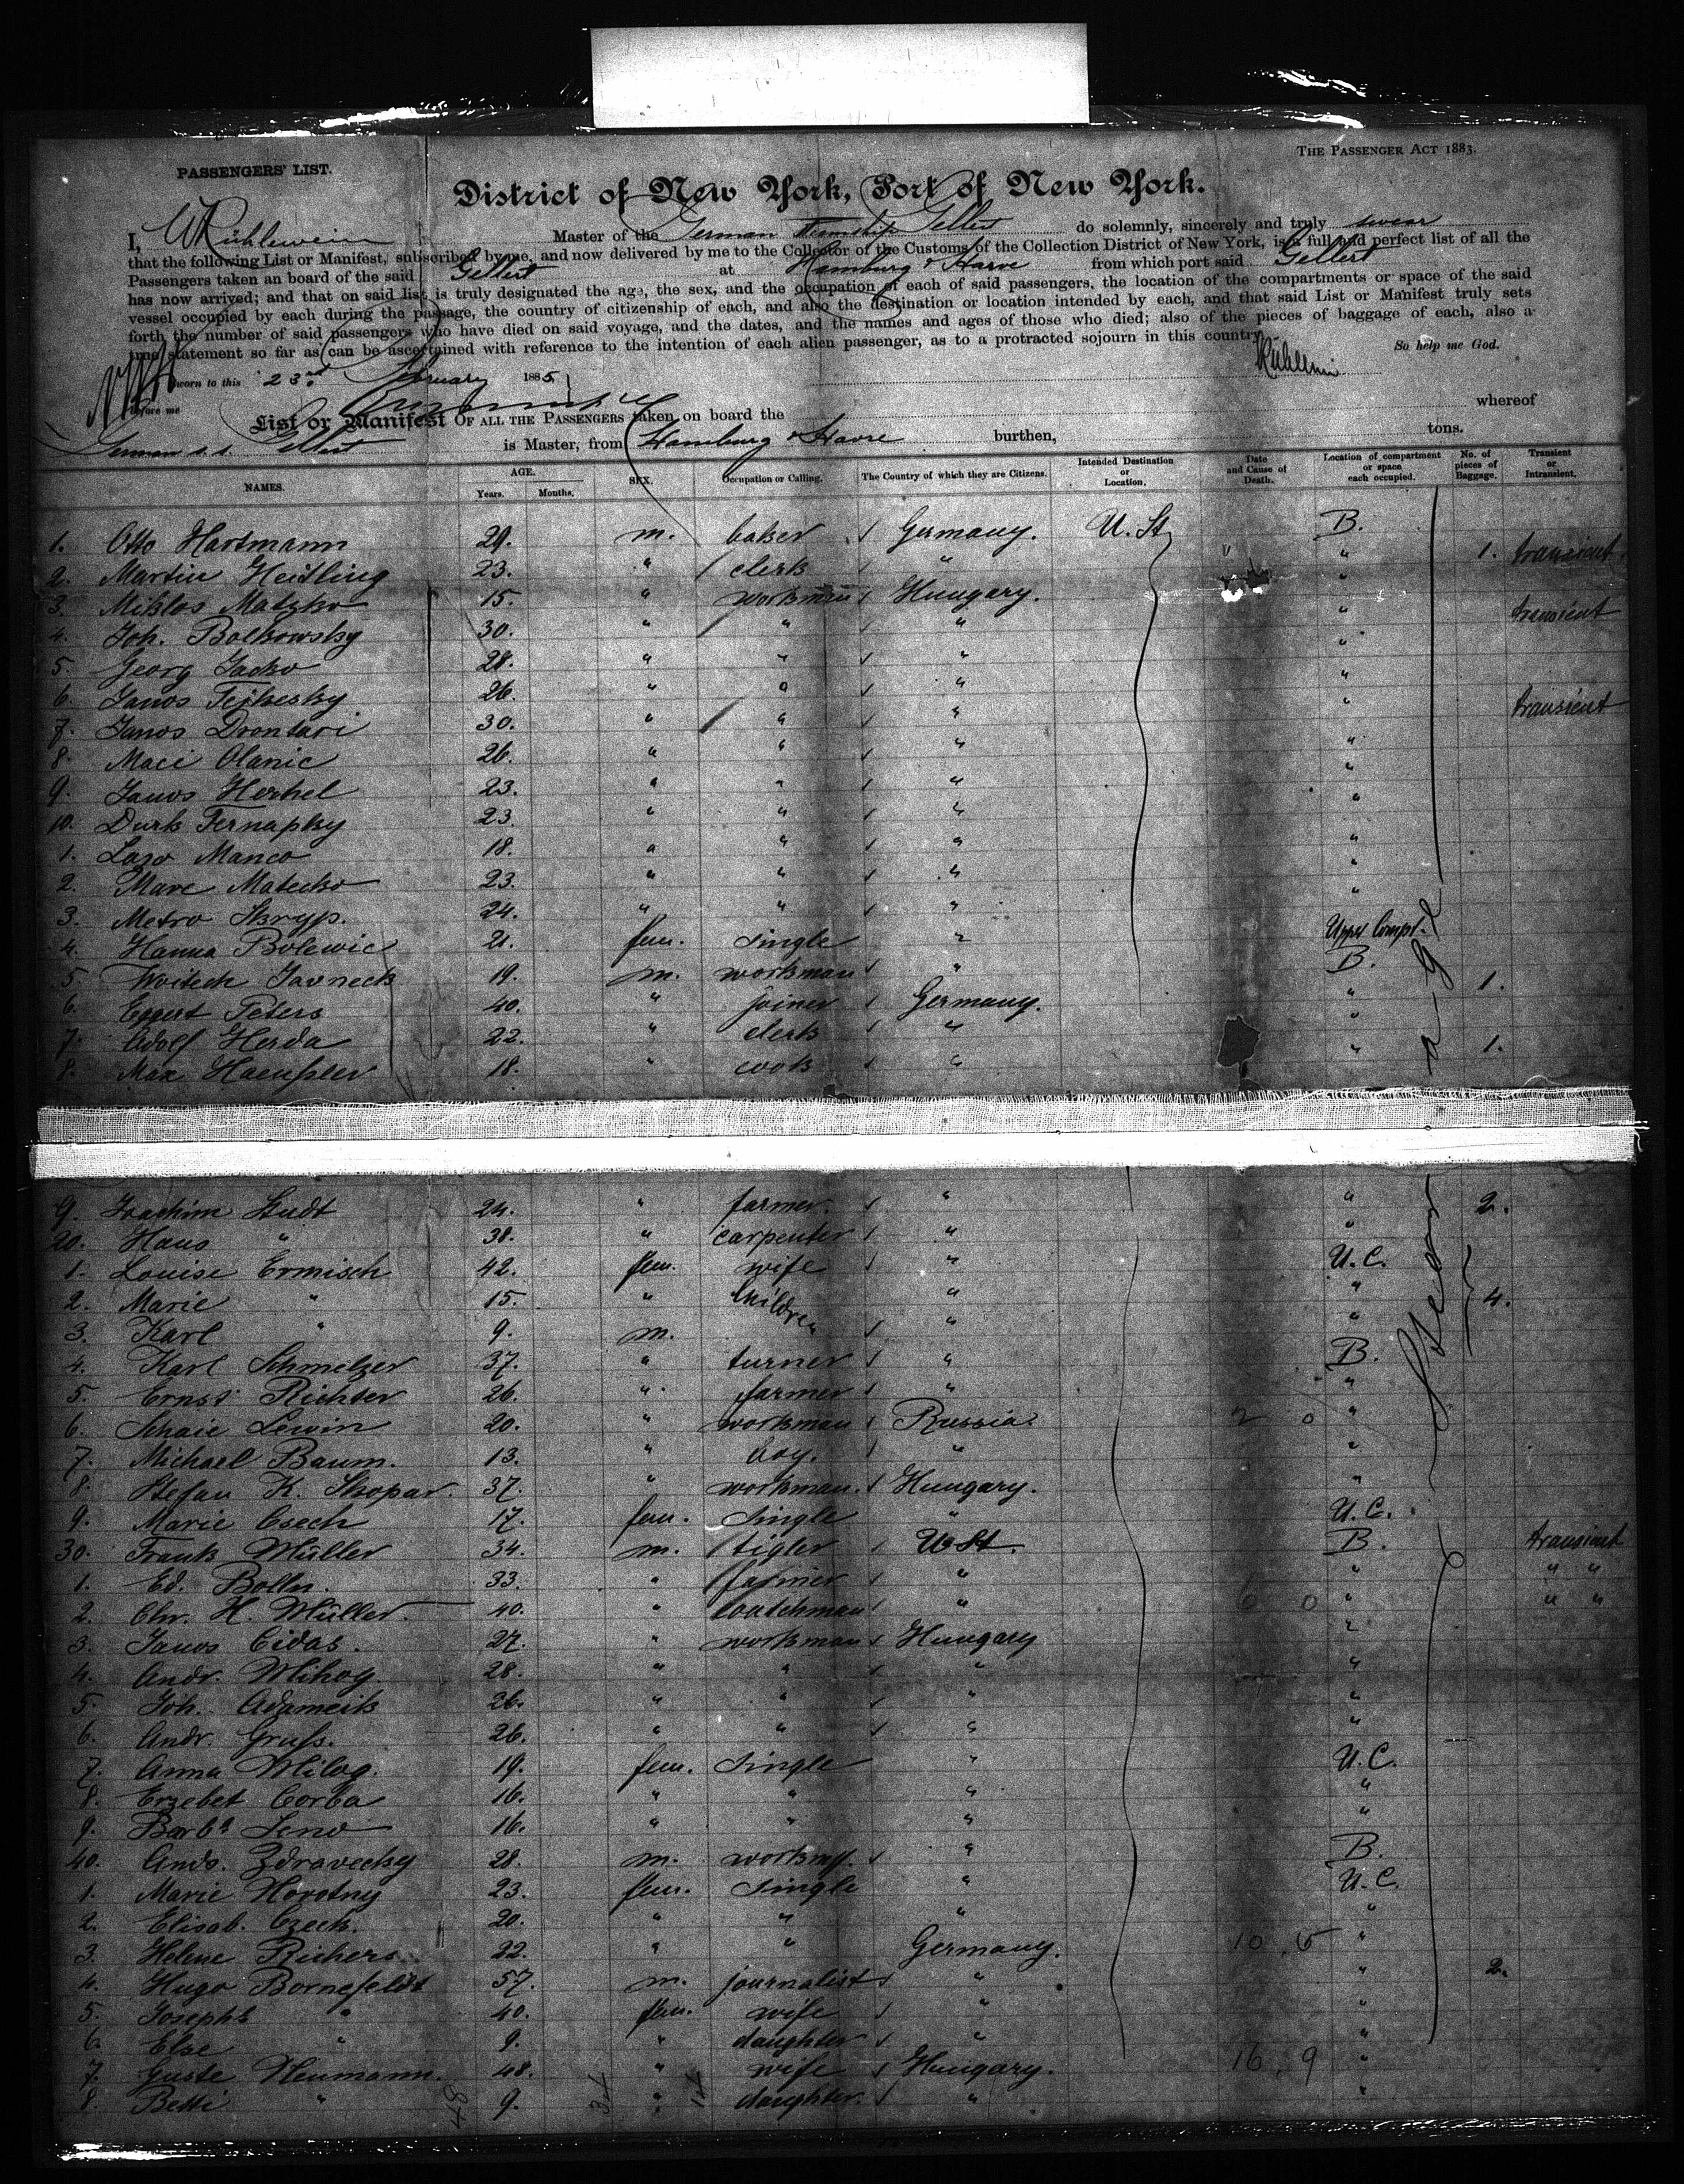 THE PASSENGER ACT 1883.
PASSENGERS' LIST.
District of New York, Port of New York.
I, W Kühlewein Master of the German Steamship Gellert do solemnly, sincerely and truly swear
that the following List or Manifest, subscribed by me, and now delivered by me to the Collector of the Customs of the Collection District of New York, is a full and perfect list of all the
Passengers taken on board of the said Gellert at Hamburg & Havre from which port said Gellert
has now arrived; and that on said list is truly designated the age, the sex, and the occupation of each of said passengers, the location of the compartments or space of the said
vessel occupied by each during the passage, the country of citizenship of each, and also the destination or location intended by each, and that said List or Manifest truly sets
forth the number of said passengers who have died on said voyage, and the dates, and the names and ages of those who died; also of the pieces of baggage of each, also a
true statement so far as can be ascertained with reference to the intention of each alien passenger, as to a protracted sojourn in this country. So help me God.
Sworn to this 23rd February 1885 Kühlewein
Before me
List or Manifest OF ALL THE PASSENGERS taken on board the whereof
German s.s. Gellert is Master, from Hamburg & Havre burthen, tons.
NAMES. AGE. Years. Months. SEX. Occupation or Calling. The Country of which they are Citizens. Intended Destination or Location. Date and Cause of Death. Location of compartment or space each occupied. No. of pieces of Baggage. Transient or Intransient.
1. Otto Hartmann 29. m. baker Germany. U. St. B.
2. Martin Heitling 23. " clerk " " 1. transient
3. Miklos Matzko 15. " workman Hungary. "
4. Joh. Bolkowsky 30. " " " " transient
5. Georg Jacko 28. " " " "
6. Janos Tejkesky 26. " " " "
7. Janos Drontari 30. " " " " transient
8. Maci Olanic 26. " " " "
9. Janos Horkel 23. " " " "
10. Durk Fernapky 23. " " " "
1. Lazo Manco 18. " " " "
2. Mare Matecko 23. " " " "
3. Metro Skryp. 24. " " " "
4. Hanna Bolewic 21. fem. single " Upper Compt.
5. Woitech Javneck 19. m. workman " B.
6. Eggert Peters 40. " joiner Germany. " 1.
7. Adolf Herda 22. " clerk " "
8. Max Haenßler 18. " cook " " 1.
9. Joachim Studt 24. " farmer. " " 2.
20. Hans " 38. " carpenter " "
1. Louise Ermisch 42. fem. wife " U. C.
2. Marie " 15. " children " " 4.
3. Karl " 9. m. " "
4. Karl Schmelzer 37. " turner " B.
5. Ernst Richter 26. " farmer " "
6. Schaie Lewin 20. " workman Russia 2 0 "
7. Michael Baum. 13. " boy. " "
8. Stefan K. Skopar. 37. " workman. Hungary. "
9. Marie Csech 17. fem. single " U. C.
30. Frank Müller 34. m. tigler U. St. B. transient
1. Ed. Bolln. 33. " farmer " " " "
2. Chr. H. Müller. 40. " coatchman " 6 0 " " "
3. Janos Cidas. 27. " workman Hungary "
4. Andr. Mihog. 28. " " " "
5. Joh. Adameik 26. " " " "
6. Andr. Gruß. 26. " " " "
7. Anna Milog. 19. fem. single " U. C.
8. Erzebet Corba 16. " " " "
9. Barba Seno 16. " " " "
40. Andr. Zdravecky 28. m. workm. " B.
1. Marie Horotny 23. fem. single " U. C.
2. Elisab. Czeck. 20. " " " "
3. Helene Richers 22. " " Germany. 10 5 "
4. Hugo Bornefeldt 57. m. journalist " " 2.
5. Josephk " 40. fem. wife " "
6. Else " 9. " daughter " "
7. Guste Neumann. 48. " wife Hungary. 16 9 "
8. Betti " 9. " daughter. " "
Steerage